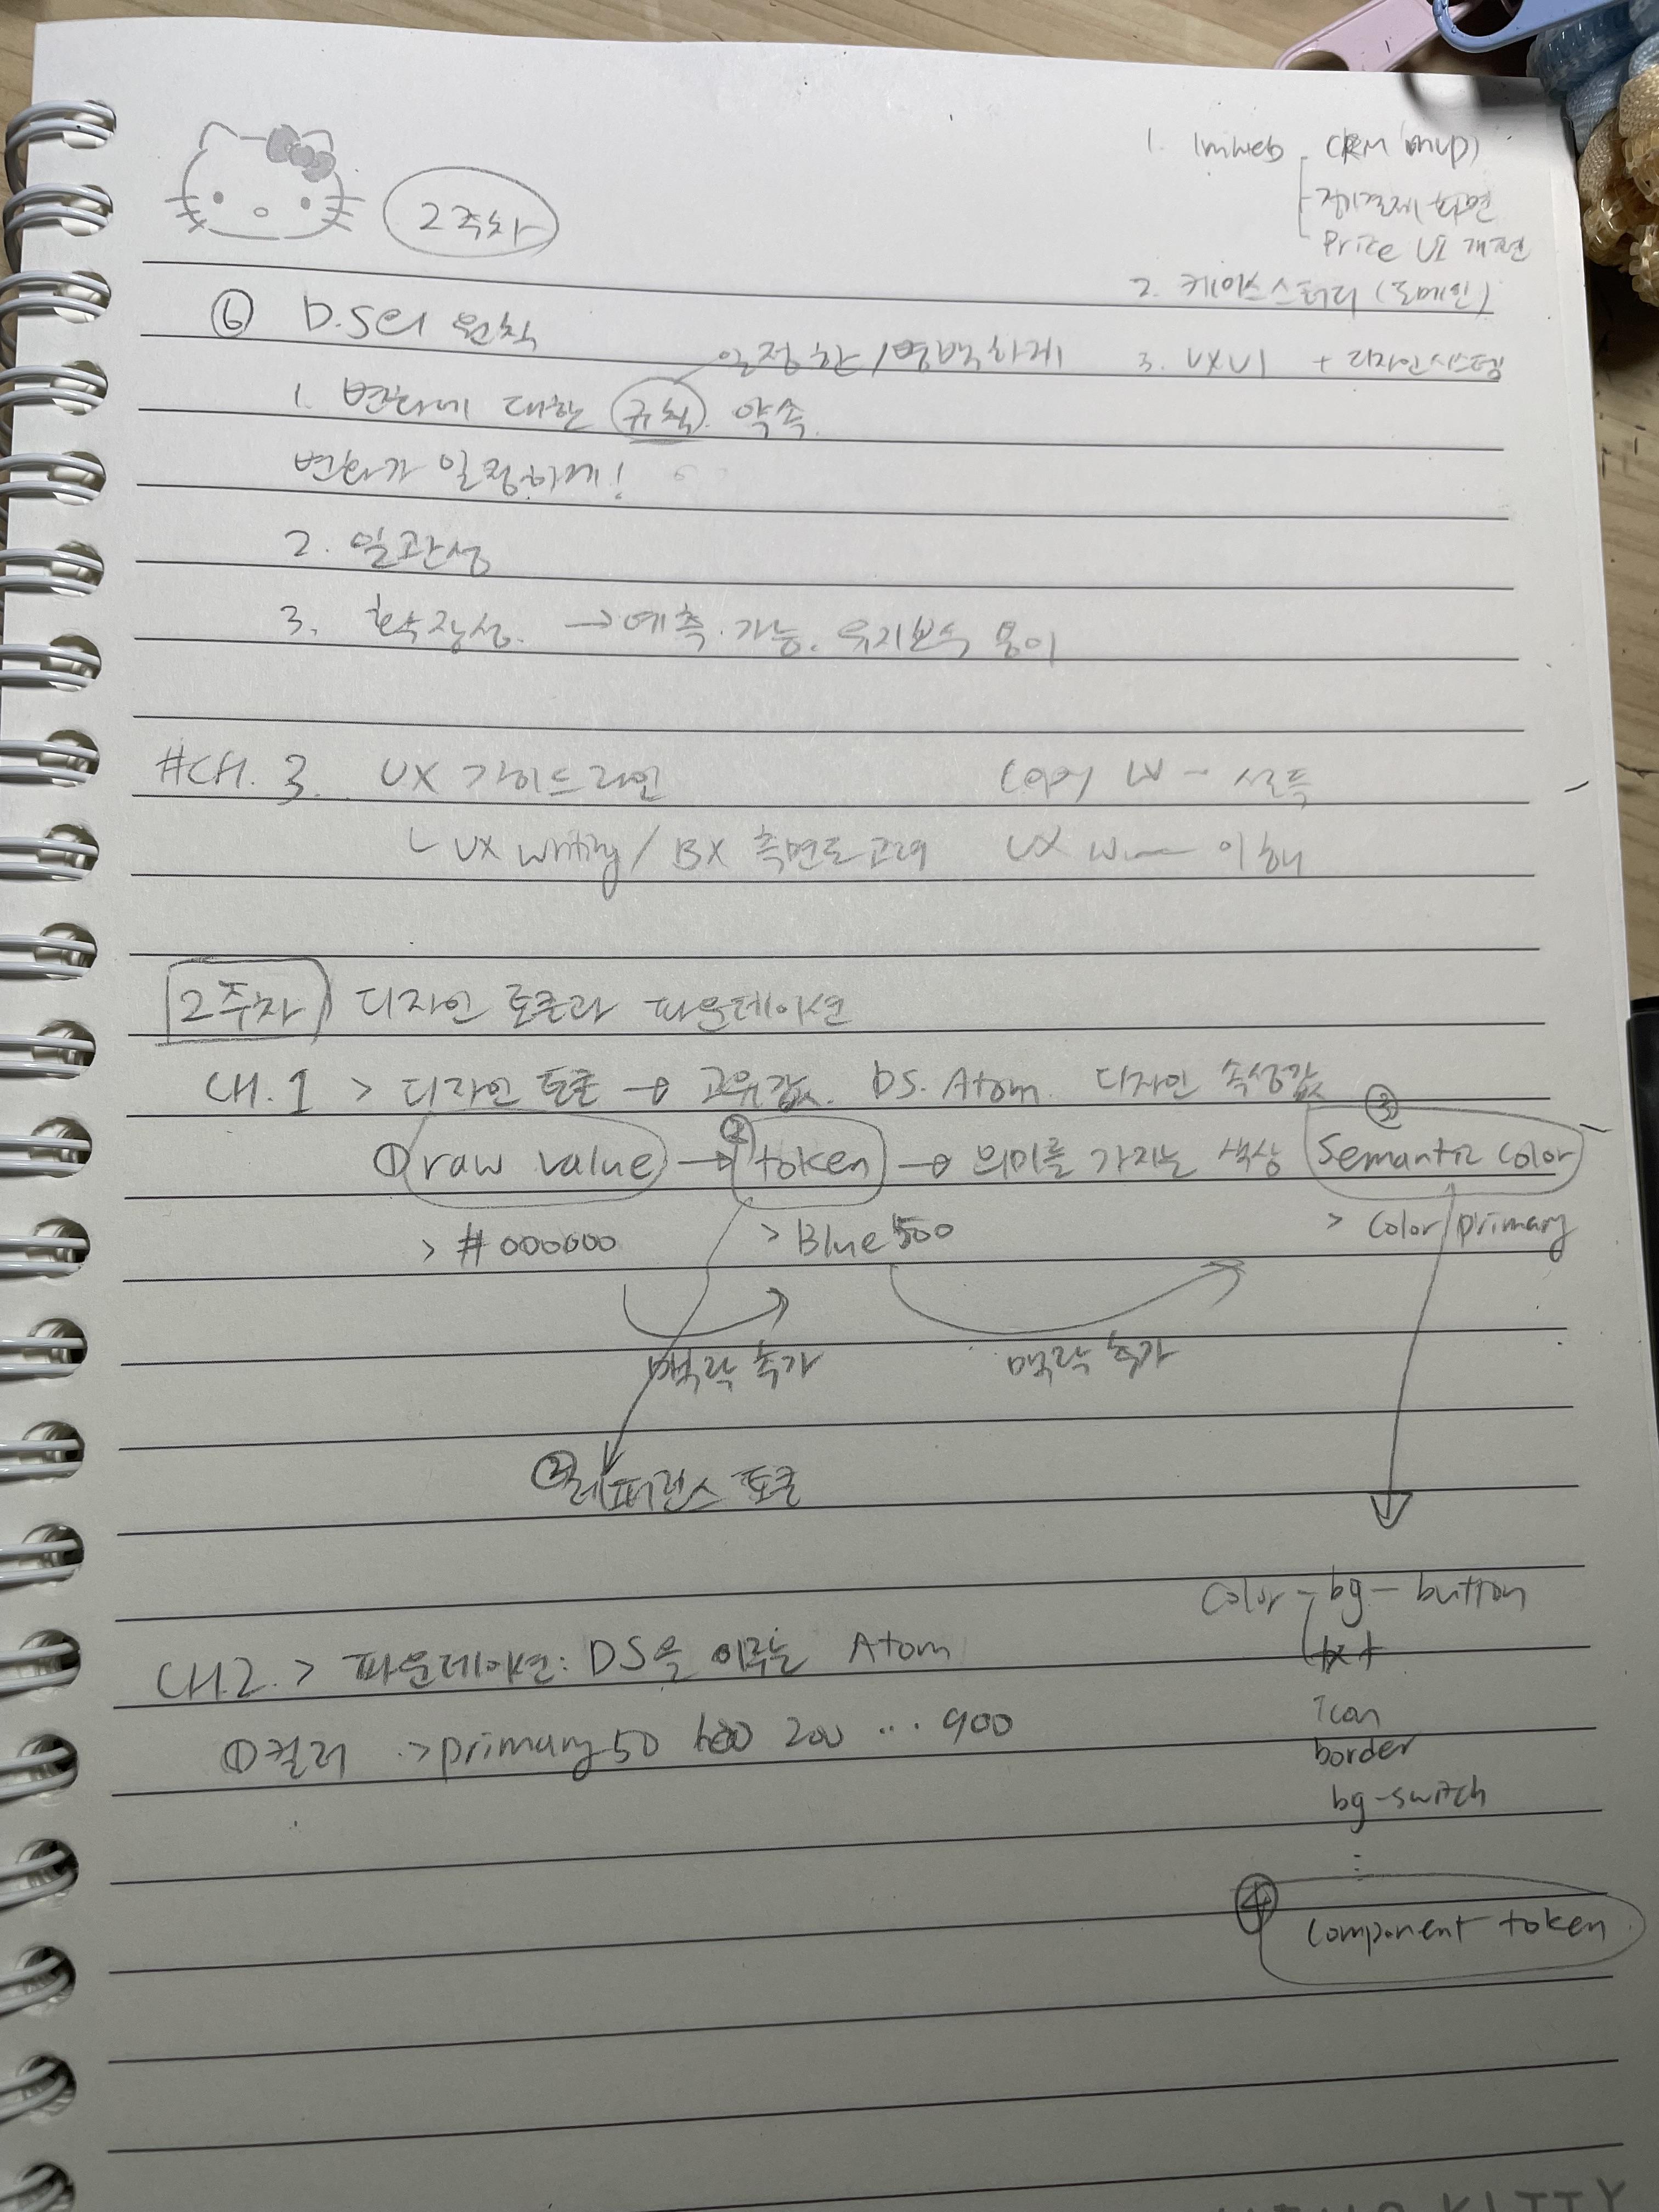 2주차
1. Imweb CRM (MVP)
정기결제 화면
Price UI 개편
2. 케이스스터디 (도메인)
3. UXUI + 디자인시스템
⑥ D.S의 원칙
일정한/명확하게
1. 변화에 대한 규칙. 약속.
변화가 일정하게!
2. 일관성
3. 확장성. → 예측. 가능. 유지보수 용이
#CH. 3. UX 가이드라인 Copy W — 설득
ㄴ UX writing / BX 측면도 고려 UX W 이해
2주차 디자인 토큰과 파운데이션
CH.1 > 디자인 토큰 → 고유값. DS. Atom. 디자인 속성값
① raw value → ② token → 의미를 가지는 색상 ③ Semantic color
> #000000 > Blue 500 > Color/primary
맥락 추가 맥락 추가
② 레퍼런스 토큰
Color - bg - button
txt
icon
border
bg-switch
⋮
④ Component token
CH2. > 파운데이션: DS을 이루는 Atom
① 컬러 > primary 50 100 200 ... 900
HELLO KITTY